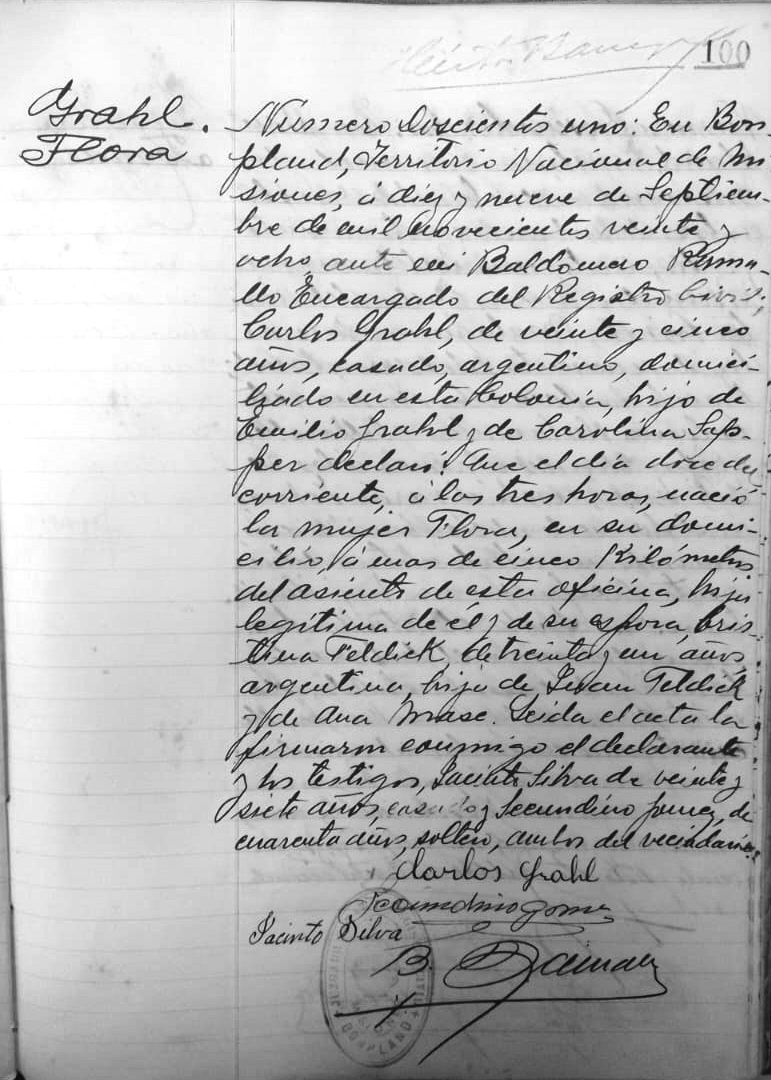 100
Grahl.
Flora
Número doscientos uno: En Bon-
pland, Territorio Nacional de Mi
siones, á diez y nueve de Septiem-
bre de mil novecientos veinte y
ocho, ante mi Baldomero
Encargado del Registro Civil,
Carlos Grahl, de veinte y cinco
años, casado, argentino, domici-
liado en esta Colonia, hijo de
Emilio Grahl y de Carolina Sap-
per declaró: Que el dia doce del
corriente, á las tres horas, nació
la mujer Flora, en su domi-
cilio, á mas de cinco Kilómetros
del asiento de esta oficina, hija
legítima de él y de su esposa, Cris-
tina Feldick, de treinta y un años,
argentina, hija de Juan Feldick
y de Ana Mase. Leida el acta la
firmaron conmigo el declarante
y los testigos, Jacinto Silva de veinte y
siete años, casado y Secundino Gomez, de
cuarenta años, soltero, ambos del vecindario.
Carlos Grahl
Secundino Gomez
Jacinto Silva
B.
BONPLAND